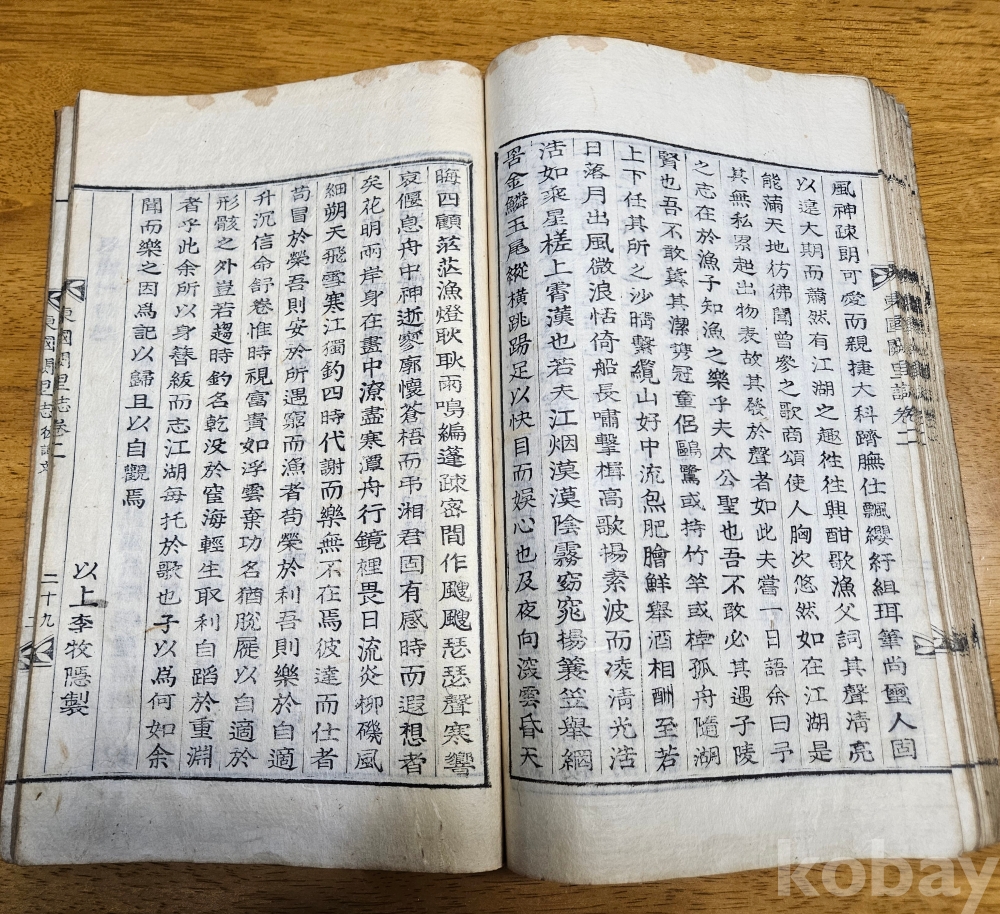 東國闕里誌卷二
風神疎朗可愛而親捷大科躋膴仕飄纓紆組珥筆尚璽人固
以遠大期而蕭然有江湖之趣徃徃興酣歌漁父詞其聲清亮
能滿天地彷彿聞曾參之歌商頌使人胸次悠然如在江湖是
其無私累超出物表故其發於聲者如此夫嘗一日語余曰予
之志在於漁子知漁之樂乎夫太公聖也吾不敢必其遇子陵
賢也吾不敢冀其潔𢹂冠童侶鷗鷺或持竹竿或棹孤舟隨湖
上下任其所之沙晴繫纜山好中流魚肥膾鮮舉酒相酬至若
日落月出風微浪恬倚船長嘯擊楫高歌揚素波而凌清光浩
浩如乘星槎上霄漢也若夫江烟漠漠陰霧窈窕揚蓑笠舉網
罟金鱗玉尾縱橫跳踢足以快目而娛心也及夜向深雲昏天
晦四顧茫茫漁燈耿耿雨鳴編蓬疎密間作颼颼瑟瑟聲寒響
哀偃息舟中神逝寥廓懷蒼梧而弔湘君固有感時而遐想者
矣花明兩岸身在畫中潦盡寒潭舟行鏡裡畏日流炎柳磯風
細朔天飛雪寒江獨釣四時代謝而樂無不在焉彼達而仕者
苟冒於榮吾則安於所遇窮而漁者苟榮於利吾則樂於自適
升沉信命舒卷惟時視富貴如浮雲棄功名猶脫屣以自適於
形骸之外豈若趨時釣名乾没於宦海輕生取利自蹈於重淵
者乎此余所以身簪紱而志江湖每托於歌也子以爲何如余
聞而樂之因爲記以歸且以自觀焉
以上李牧隱製
東國闕里志卷二
二十九
kobay